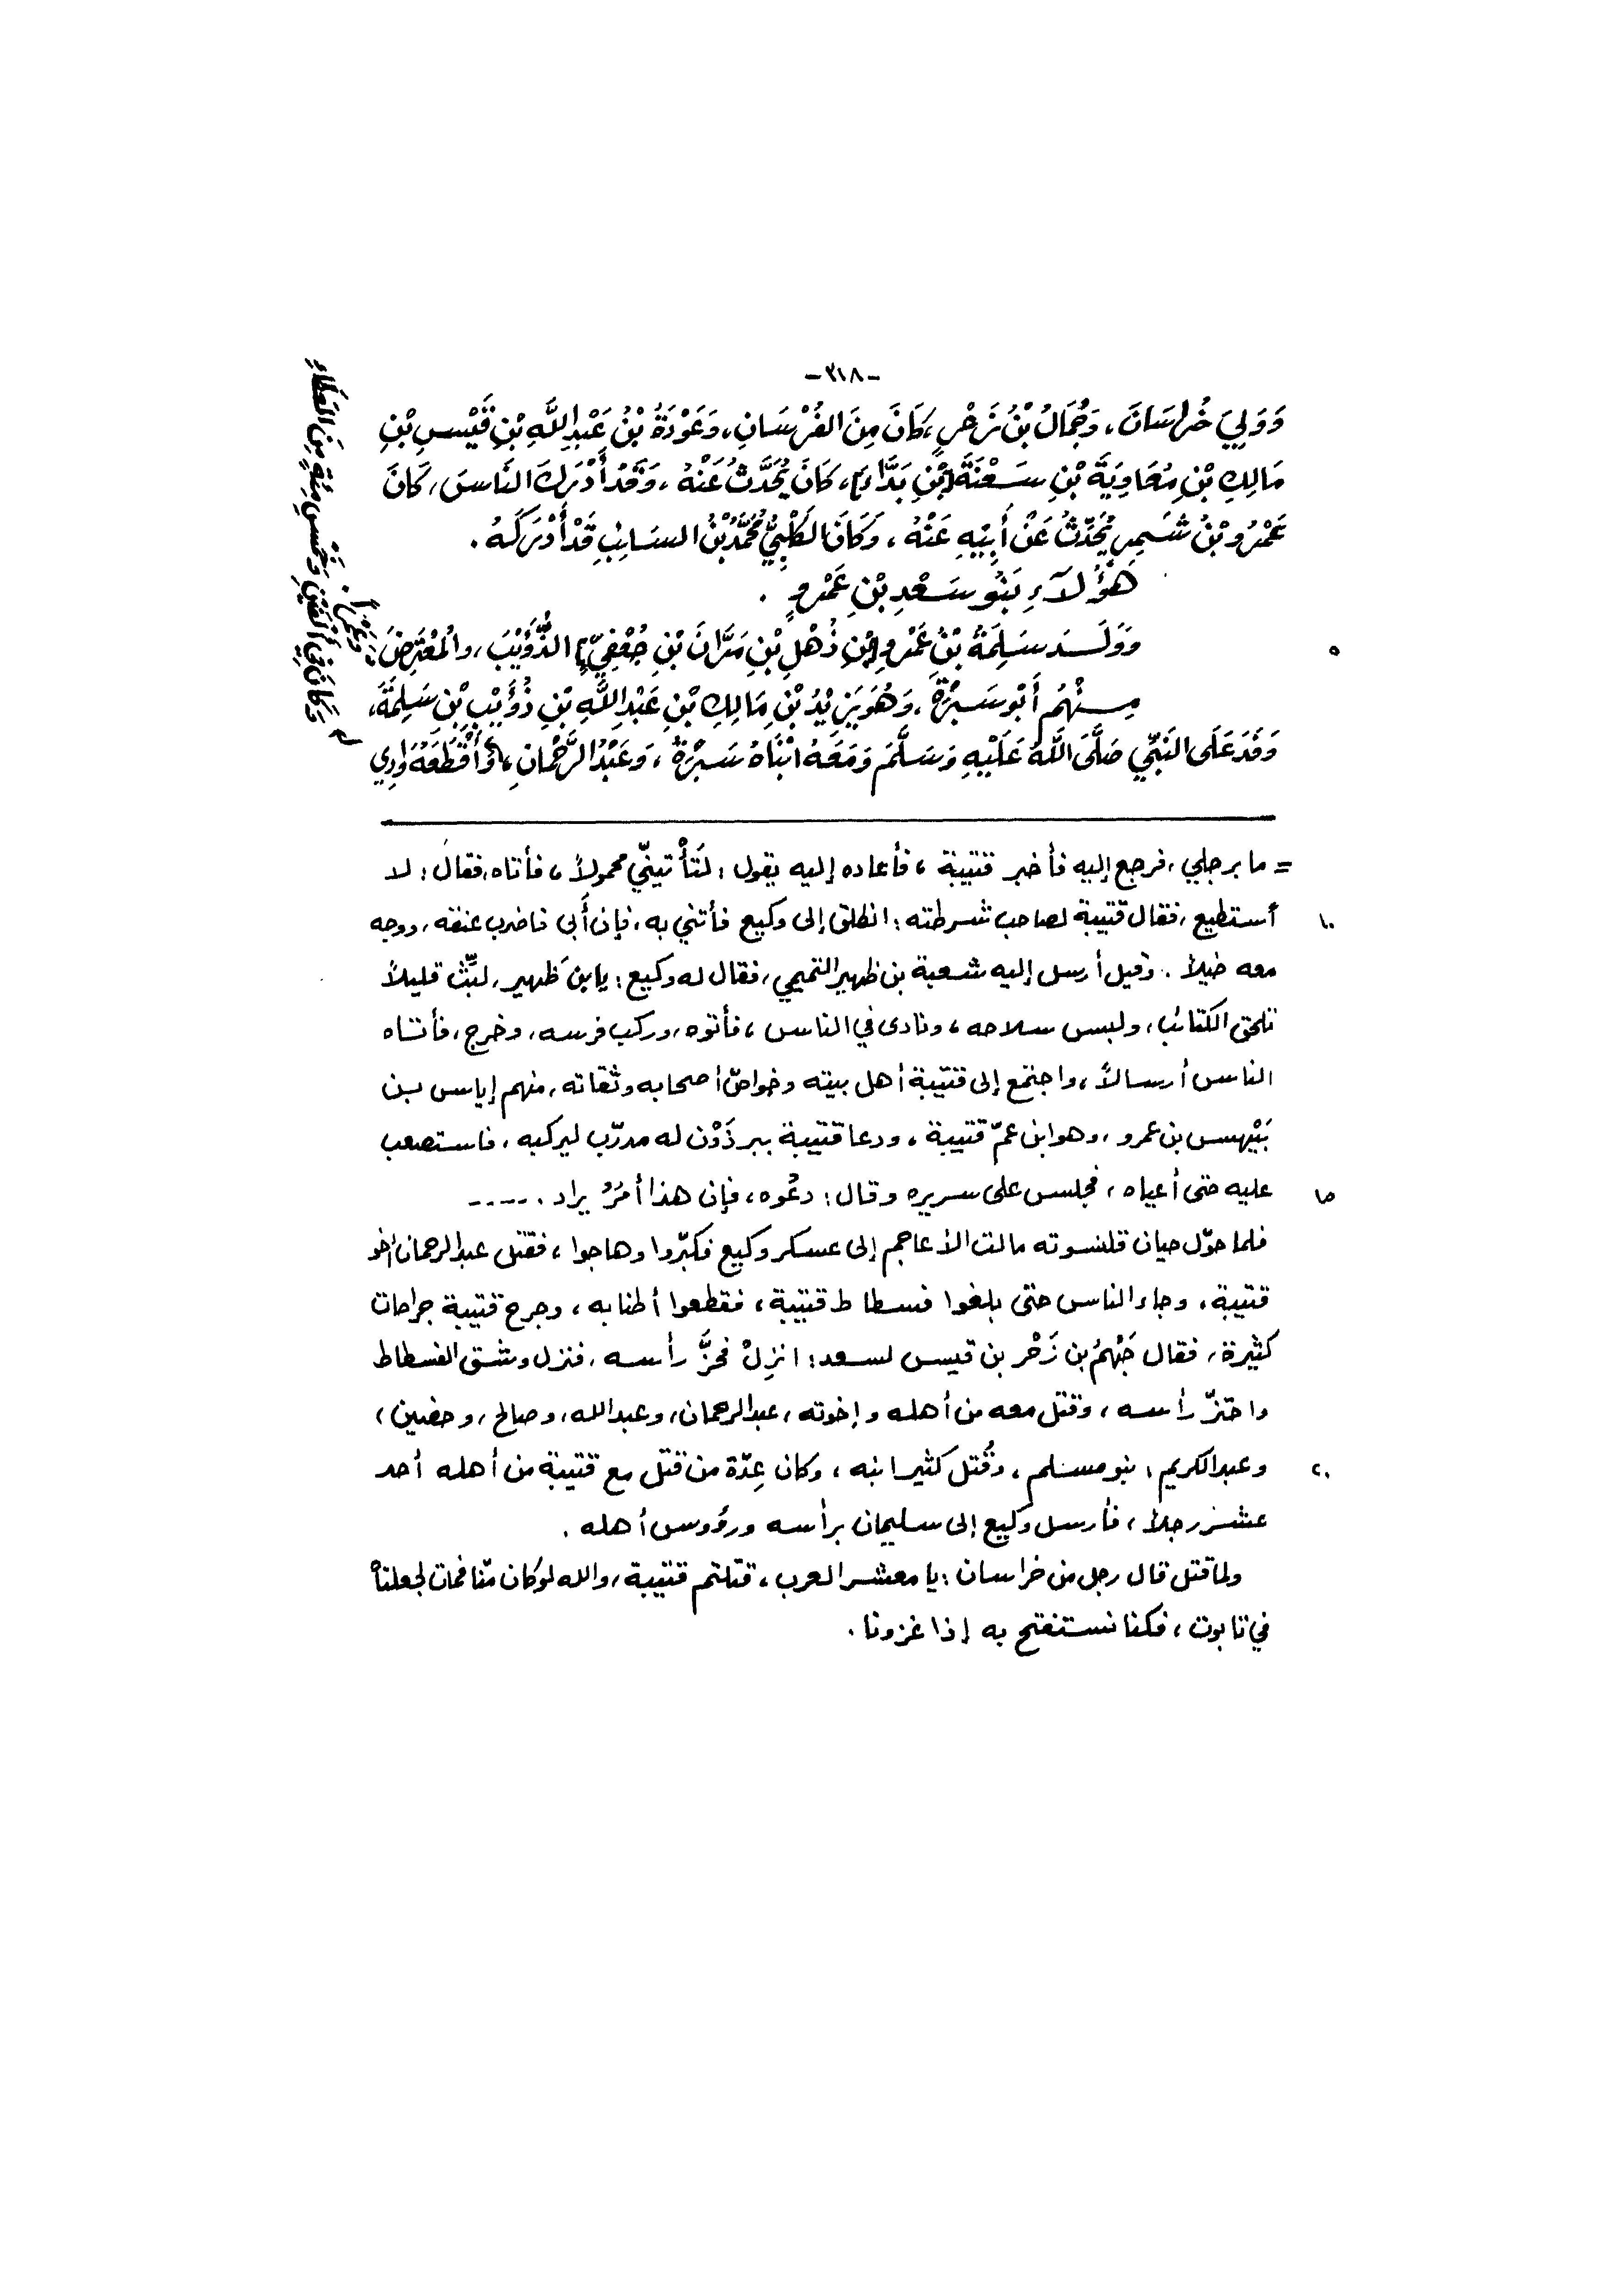 -٣١٨-
وَوَلِيَ خُرَاسَانَ، وَجُمَالُ بْنُ زَحْرٍ، كَانَ مِنَ الفُرْسَانِ، وَعَوْذَةُ بْنُ عَبْدِ اللَّهِ بْنِ قَيْسِ بْنِ
مَالِكِ بْنِ مُعَاوِيَةَ بْنِ سَعْنَةَ [بْنِ بَدَّاءٍ]، كَانَ يُحَدَّثُ عَنْهُ، وَقَدْ أَدْرَكَ النَّاسَ، كَانَ
عَمْرُو بْنُ شَمِرٍ يُحَدِّثُ عَنْ أَبِيْهِ عَنْهُ، وَكَانَ الكَلْبِيُّ مُحَمَّدُ بْنُ السَائِبِ قَدْ أَدْرَكَهُ.
هَؤُلَاءِ بَنُو سَعْدِ بْنِ عَمْرٍو.
وَوَلَدَ سَلِمَةُ بْنُ عَمْرِو [بْنِ ذُهْلِ بْنِ مَرَّانَ بْنِ جُعْفِيٍّ] الذُّؤَيْبَ، والمُعْتَرِضَ،
٥
مِنْهُم أَبُو سَبْرَةَ، وَهُوَ يَزِيْدُ بْنُ مَالِكِ بْنِ عَبْدِ اللَّهِ بْنِ ذُؤَيْبِ بْنِ سَلِمَةَ،
وَفَدَ عَلَى النَبِيِّ صَلَّى اللَّهُ عَلَيْهِ وَسَلَّمَ وَمَعَهُ ابْنَاهُ سَبْرَةُ، وَعَبْدُ الرَّحْمَانِ، وَأَقْطَعَهُ وَادِي
وَكَانَ فِي أَلْفَيْنِ وَخَمْسِ مِئَةٍ مِنَ العَطَاءِ
= ما برجلي، فرجع إليه فأخبر قتيبة، فأعاده إليه يقول: لتَأْتينّي محمولاً، فأتاه، فقال: لا
أستطيع، فقال قتيبة لصاحب شرطته: انطلق إلى وكيع فأتني به، فإن أَبى فاضرب عنقه، ووجه
١٠
معه خيلاً. وقيل أرسل إليه شعبة بن ظهير التميمي، فقال له وكيع: يا بن ظهير، لبِّث قليلاً
تلحق الكتائب، ولبس سلاحه، ونادى في الناس، فأتوه، وركب فرسه، وخرج، فأتاه
الناس أرسالاً، واجتمع إلى قتيبة أهل بيته وخواصّ أصحابه وثقاته، منهم إياس بن
بَيْهس بن عمرو، وهو ابن عمّ قتيبة، ودعا قتيبة ببرذَوْن له مدرّب ليركبه، فاستصعب
عليه حتى أعياه، فجلس على سريره وقال: دعُوه، فإن هذا أمرٌ يراد. -----
١٥
فلما حوّل حيان قلنسوته مالت الأعاجم إلى عسكر وكيع فكبّروا وهاجوا، فقتل عبد الرحمان أخو
قتيبة، وجاء الناس حتى بلغوا فسطاط قتيبة، فقطعوا أطنابه، وجرح قتيبة جراحات
كثيرة، فقال جَهْمُ بن زَحْر بن قيس لسعد: انزِلْ فحزَّ رأسه، فنزل وشق الفسطاط
واحتزّ رأسه، وقتل معه من أهله وإخوته، عبد الرحمان، وعبد الله، وصالح، وحصين،
وعبد الكريم، بنو مسلم، وقُتل كثير ابنه، وكان عِدّة من قتل مع قتيبة من أهله أحد
٢٠
عشر رجلاً، فأرسل وكيع إلى سليمان برأسه ورؤوس أهله.
ولما قتل قال رجل من خراسان: يا معشر العرب، قتلتم قتيبة، والله لو كان منّا فمات لجعلناه
في تابوت، فكنا نستفتح به إذا غزونا.